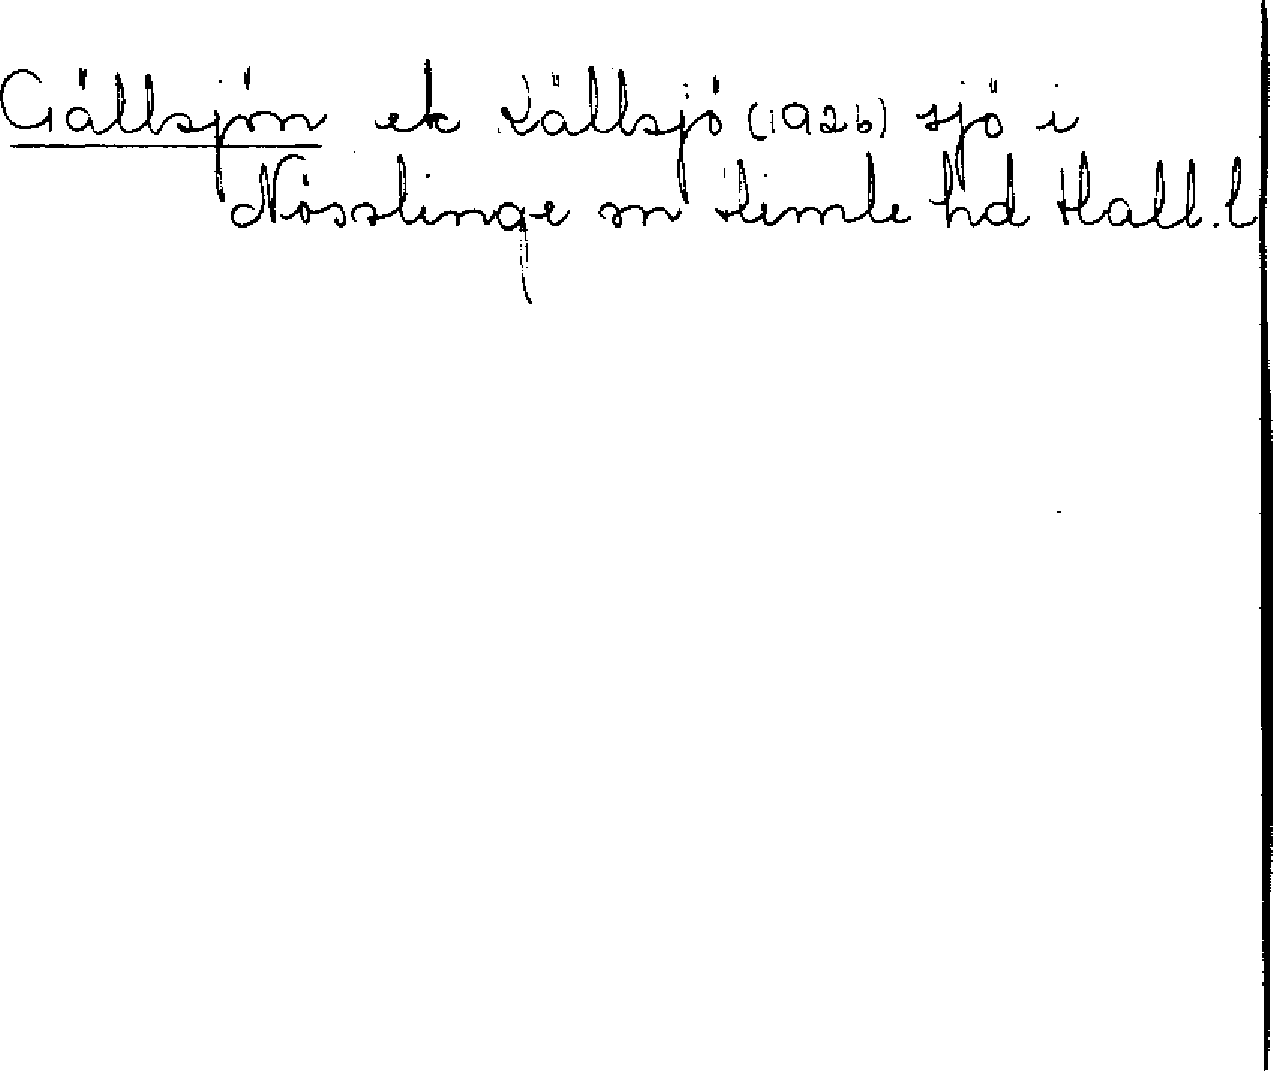 Gällsjön ek Källsjö (1926) sjö i
Nösslinge sn Himle hd Hall.l